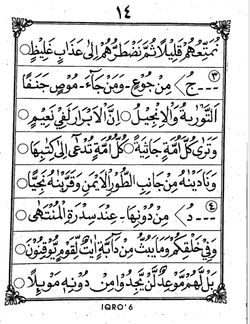 ١٤
نُمَتِّعُهُمْ قَلِيْلًا ثُمَّ نَضْطَرُّهُمْ اِلٰى عَذَابٍ غَلِيْظٍ
٣ ــ ج > مِنْ جُوْعٍ ــ وَمَنْ جَآءَ ــ مُوْصٍ جَنَفًا
التَّوْرٰىةَ وَالْاِنْجِيْلَ ○ اِنَّ الْاَبْرَارَ لَفِيْ نَعِيْمٍ
وَتَرٰى كُلَّ اُمَّةٍ جَاثِيَةً ○ كُلُّ اُمَّةٍ تُدْعٰٓى اِلٰى كِتٰبِهَا
وَنَادَيْنٰهُ مِنْ جَانِبِ الطُّوْرِ الْاَيْمَنِ وَقَرَّبْنٰهُ نَجِيًّا
٤ ــ د > مِنْ دُوْنِهَا ــ عِنْدَ سِدْرَةِ الْمُنْتَهٰى
وَفِيْ خَلْقِكُمْ وَمَا يَبُثُّ مِنْ دَآبَّةٍ اٰيٰتٌ لِّقَوْمٍ يُّوْقِنُوْنَ
بَلْ لَّهُمْ مَّوْعِدٌ لَّنْ يَّجِدُوْا مِنْ دُوْنِهٖ مَوْئِلًا ○
IQRO' 6